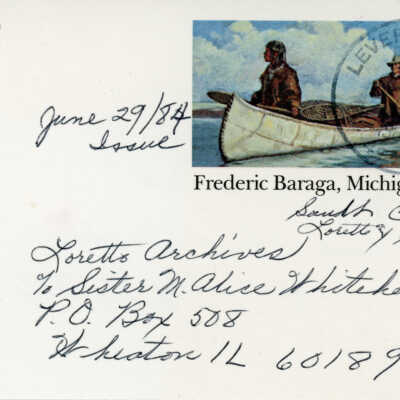 LEVE
June 29/84
Issue
Frederic Baraga, Michig
Loretto
Loretto Archives
% Sister M. Alice Whitehe
P.O. Box 508
Wheaton IL 60189